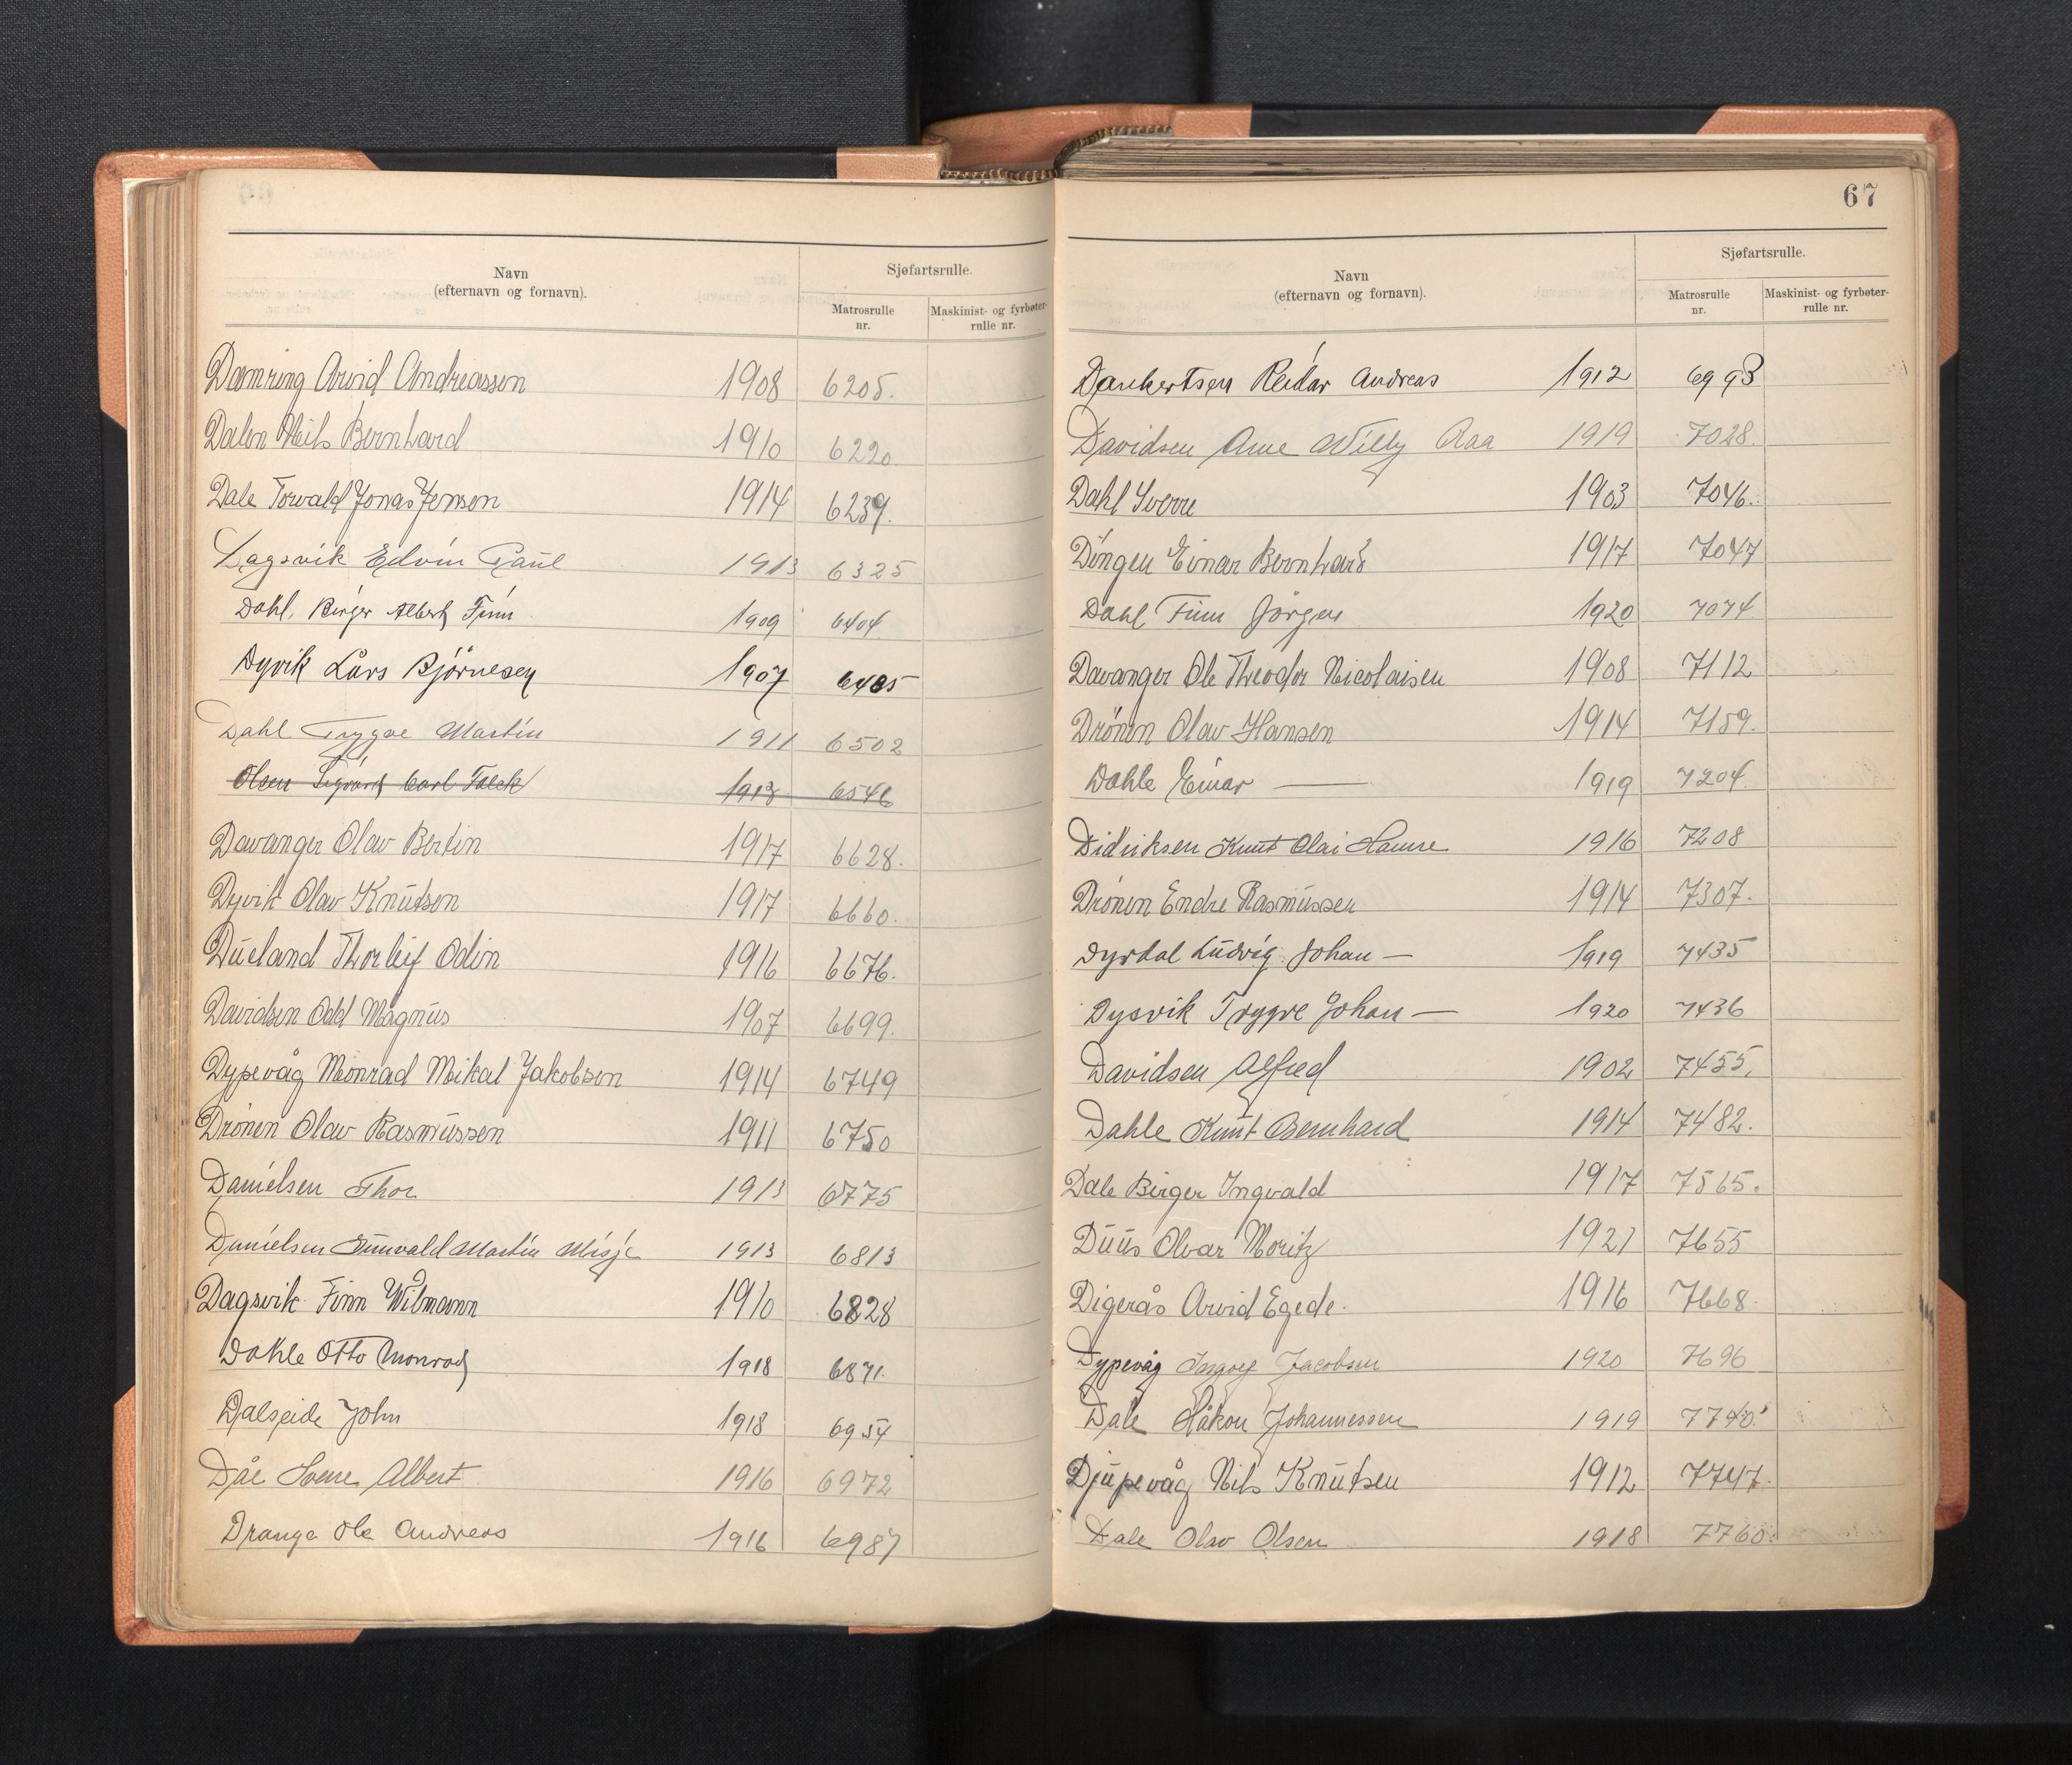 Navn
(efternavn og fornavn).
Sjøfartsrulle.
Matrosrulle
nr.
Maskinist- og fyrbøter-
rulle nr.
Dømring Arvid Andreassen 1908 6205.
Dalen Nils Bernhard 1910 6220
Dale Torvald Jonas Jensen 1914 6239.
Dagsvik Edvin Paul 1913 6325
Dahl, Birger Albert Finn 1909 6404
Dyvik Lars Bjørnesen 1907 6485
Dahl Trygve Martin 1911 6502
Olsen Sigvard Carl Falck 1913 6546
Davanger Olav Bertin 1917 6628.
Dyvik Olav Knutsen 1917 6660.
Dueland Thorleif Odin 1916 6676.
Davidsen Odd Magnus 1907 6699.
Dypevåg Monrad Mikal Jakobsen 1914 6749
Drönen Olav Rasmussen 1911 6750
Danielsen Thor 1913 6775
Danielsen Gunvald Martin Misje 1913 6813
Dagsvik Finn Wilmann 1910 6828
Dahle Otto Monrad 1918 6871.
Dalseide John 1918 6954
Dåe Sverre Albert 1916 6972
Drange Ole Andreas 1916 6987
67
Navn
(efternavn og fornavn).
Sjøfartsrulle.
Matrosrulle
nr.
Maskinist- og fyrbøter-
rulle nr.
Dankertsen Reidar Andreas 1912 6993
Davidsen Arne Willy Raa 1919 7028.
Dahl Sverre 1903 7046.
Döngen Einar Bernhard 1917 7047
Dahl Finn Jörgen 1920 7074
Davanger Ole Theodor Nicolaisen 1908 7112
Drönen Olav Hansen 1914 7159.
Dahle Einar — 1919 7204.
Didriksen Knut Olai Hamre 1916 7208
Drönen Endre Rasmussen 1914 7307.
Dyrdal Ludvig Johan — 1919 7435
Dysvik Trygve Johan — 1920 7436
Davidsen Alfred 1902 7455.
Dahle Knut Bernhard 1914 7482.
Dale Birger Ingvald 1917 7565.
Duus Olvar Moritz 1921 7655
Digerås Arvid Egede. 1916 7668.
Dypevåg Ingolf Jacobsen 1920 7696
Dale Håkon Johannessen 1919 7740.
Djupevåg Nils Knutsen 1912 7747.
Dale Olav Olsen 1918 7760.